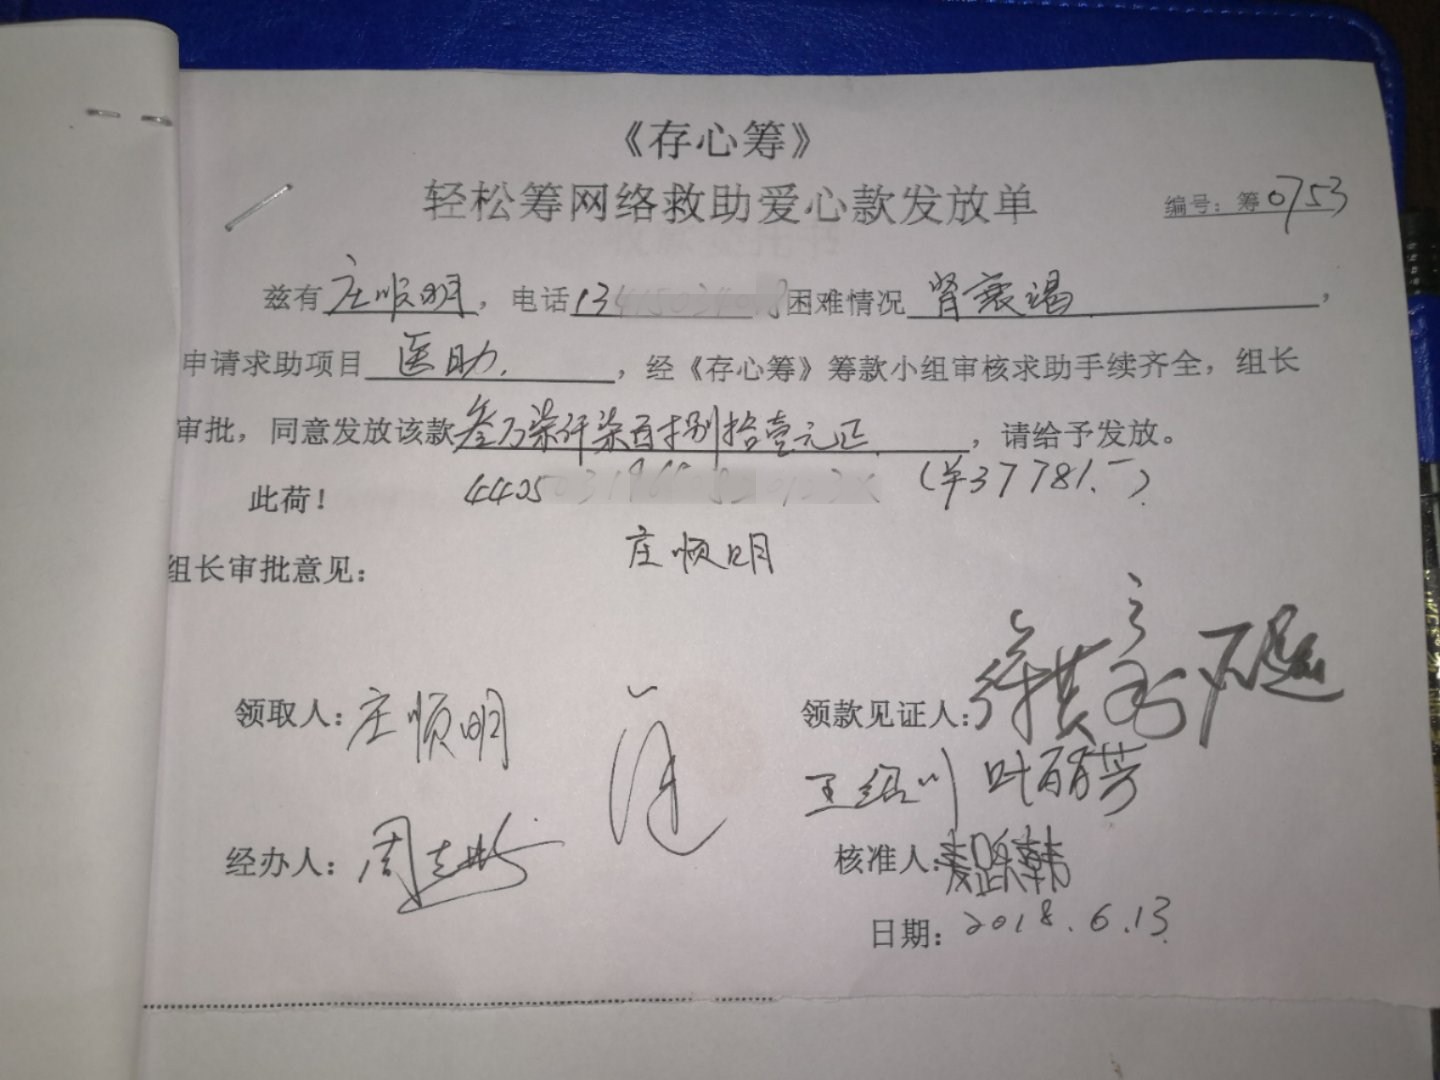 《存心筹》
轻松筹网络救助爱心款发放单
编号：筹0753
兹有庄顺明，电话134 困难情况肾衰竭，
申请求助项目医助，经《存心筹》筹款小组审核求助手续齐全，组长
审批，同意发放该款叁万柒仟柒百捌拾壹元正，请给予发放。
此荷！ 4405 （￥37781.-）
庄顺明
组长审批意见：
领取人：庄顺明 领款见证人：
叶丽芳
经办人：周 核准人：
日期：2018.6.13